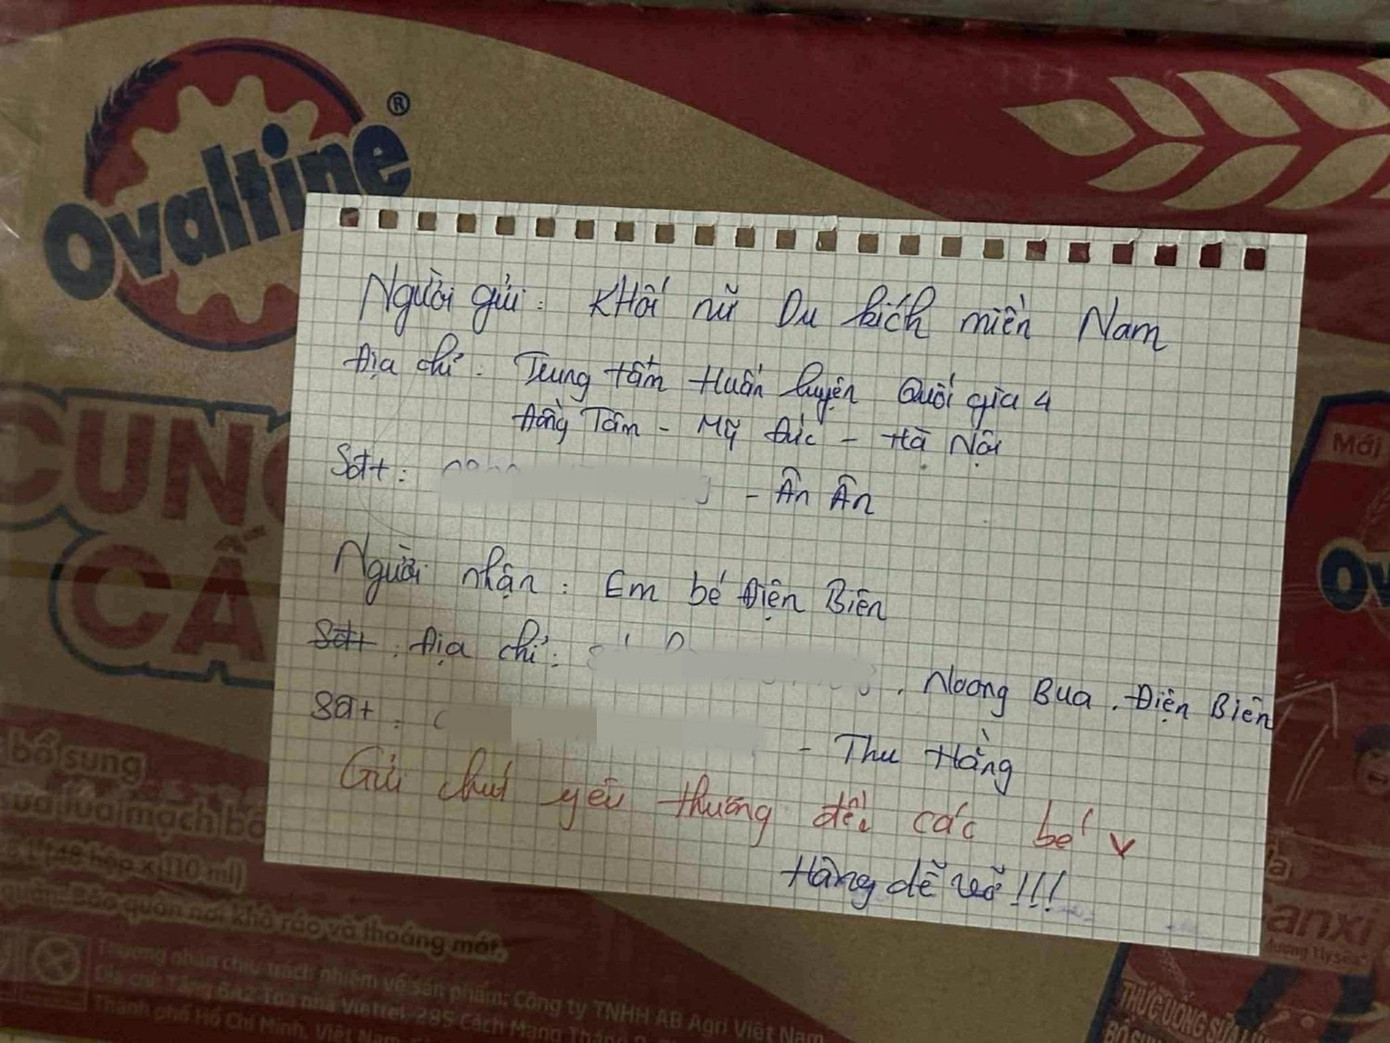 Ovaltine®
CUNG
CẤ
Người gửi: KHối nữ Du kích miền Nam
Địa chỉ: Trung tâm Huấn luyện Quốc gia 4
Đồng Tâm - Mỹ Đức - Hà Nội
Sđt: - Ân Ân
Người nhận: Em bé Điện Biên
Sđt: Địa chỉ: , Noong Bua, Điện Biên
Sđt: - Thu Hằng
Gửi chút yêu thương đến các bé
Hàng dễ vỡ!!!
bổ sung
sữa lúa mạch bổ
(48 hộp x 110 ml)
quản: Bảo quản nơi khô ráo và thoáng mát.
Thương nhân chịu trách nhiệm về sản phẩm: Công ty TNHH AB Agri Việt Nam
Địa chỉ: Tầng 6A2 Toà nhà Viettel, 285 Cách Mạng Tháng
Thành phố Hồ Chí Minh, Việt Nam
Mới
Ov
anxi
THỨC UỐNG SỮA LÚA
BỔ SUNG